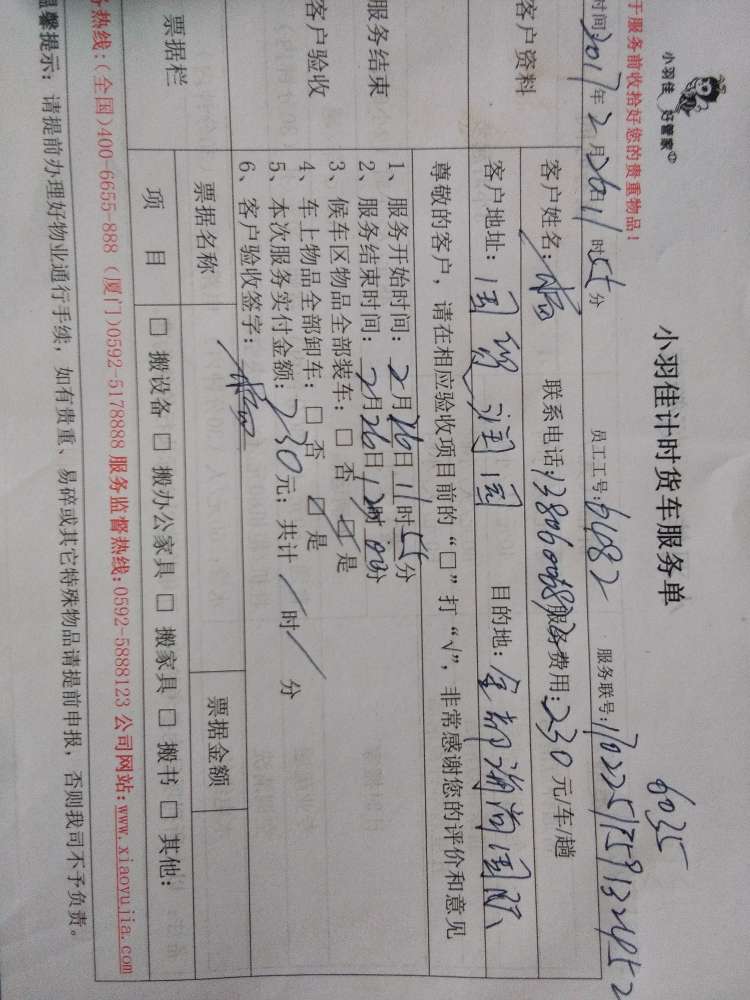 小羽佳 好管家
6035
小羽佳计时货车服务单
于服务前收拾好您的贵重物品！
时间2017年2月26日11时55分 员工工号:6482 服务联号:1702251759132452
客户资料
客户姓名: 联系电话: 服务费用:230元/车/趟
客户地址: 国贸润园 目的地: 金都海尚国际
尊敬的客户，请在相应验收项目前的“□”打“√”，非常感谢您的评价和意见
服务结束
客户验收
1、服务开始时间: 2月26日11时55分
2、服务结束时间: 2月26日12时00分
3、候车区物品全部装车: □ 否 ☑ 是
4、车上物品全部卸车: □ 否 ☑ 是
5、本次服务实付金额: 230元; 共计 / 时 / 分
6、客户验收签字:
票据栏
票据名称 票据金额
项 目 □ 搬设备 □ 搬办公家具 □ 搬家具 □ 搬书 □ 其他:
务热线:(全国)400-6655-888 (厦门)0592-5178888 服务监督热线:0592-5888123 公司网站:www.xiaoyujia.com
温馨提示: 请提前办理好物业通行手续, 如有贵重、易碎或其它特殊物品请提前申报, 否则我司不予负责。